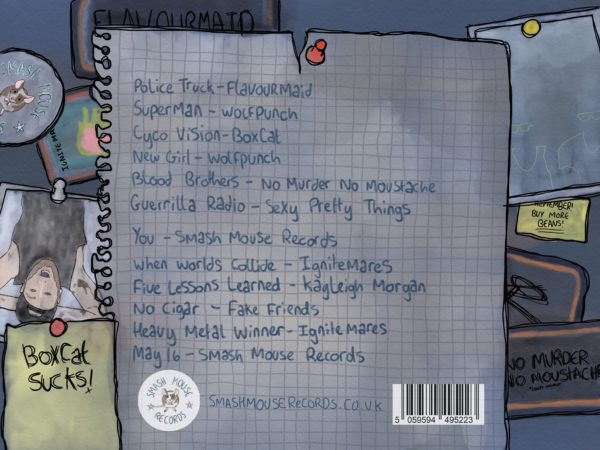 FLAVOURMAID
SMASH MOUSE
IGNITEMA
Police Truck - FLAVOURMaid
SuperMan - WOLFPUNCH
Cyco Vision - BoxCat
New Girl - Wolfpunch
Blood Brothers - No Murder No Moustache
Guerrilla Radio - Sexy Pretty Things
You - Smash Mouse Records
When Worlds Collide - IgniteMares
Five Lessons Learned - Kayleigh Morgan
No Cigar - Fake Friends
Heavy Metal Winner - IgniteMares
May 16 - Smash Mouse Records
SMASH MOUSE
RECORDS
SMASHMOUSERECORDS.CO.UK
5 059594 495223
BOXCAT
SUCKS!
REMEMBER!
BUY MORE
BEANS!
NO MURDER
NO MOUSTACHE